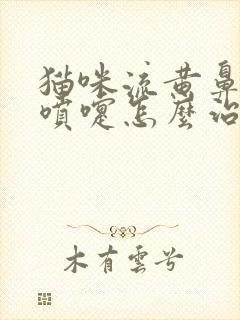 猫咪流黄鼻
喷嚏怎麼治
木有雲兮